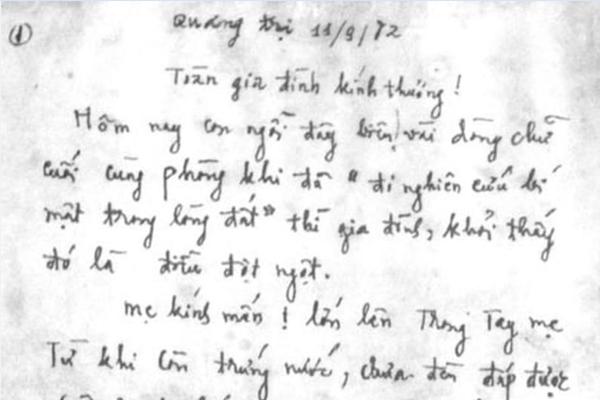 ① Quảng trị 11/9/72
Toàn gia đình kính thương!
Hôm nay con ngồi đây biên vài dòng chữ
cuối cùng phòng khi đã "đi nghiên cứu bí
mật trong lòng đất" thì gia đình, khỏi thấy
đó là điều đột ngột.
Mẹ kính mến! lớn lên Trong Tay mẹ
Từ khi còn trứng nước, chưa đền đáp được